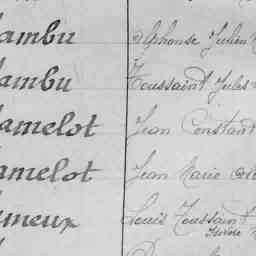 ambu Alphonse Julien
ambu Toussaint Jules
amelot Jean Constant
amelot Jean Marie
meux Louis Toussaint